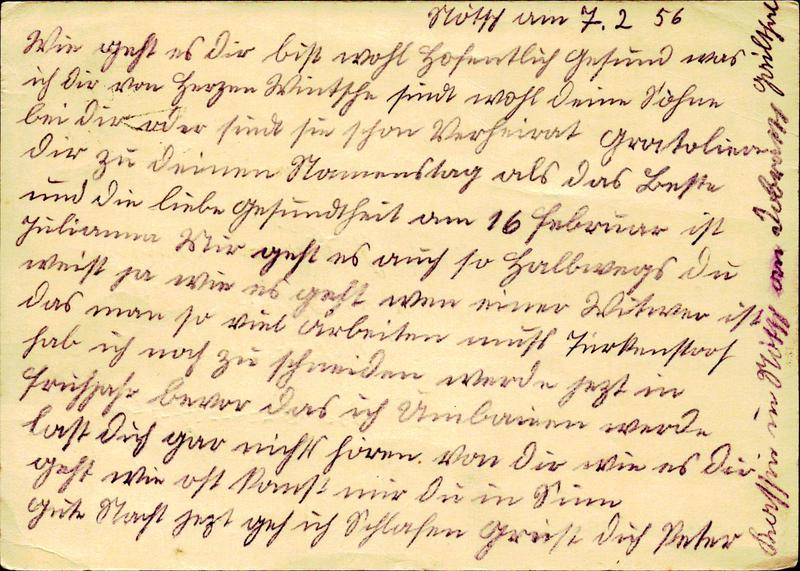 Nötsch am 7.2 56
Wie geht es dir bist wohl hofentlich gesund was
ich dir von Herzen Wintsche sindt wohl deine Söhne
bei dir oder sindt sie schon Verheirat Gratoliere
dir zu deinen Namenstag als das Beste
und die liebe Gesundtheit am 16 februar ist
Julianna Mir geht es auch so halbwegs du
weist ja wie es geht wen einer Witwer ist
das man so viel Arbeiten muss Türkenstroh
hab ich noch zu schneiden werde jezt in
frühjahr bevor das ich Umbauen werde
last dich gar nichts hören von dir wie es dir
geht wie oft komst mir du in Sinn
gute Nacht jezt geh ich Schlafen Griest dich Peter
in Nötsch an Dobratsch Gailthal